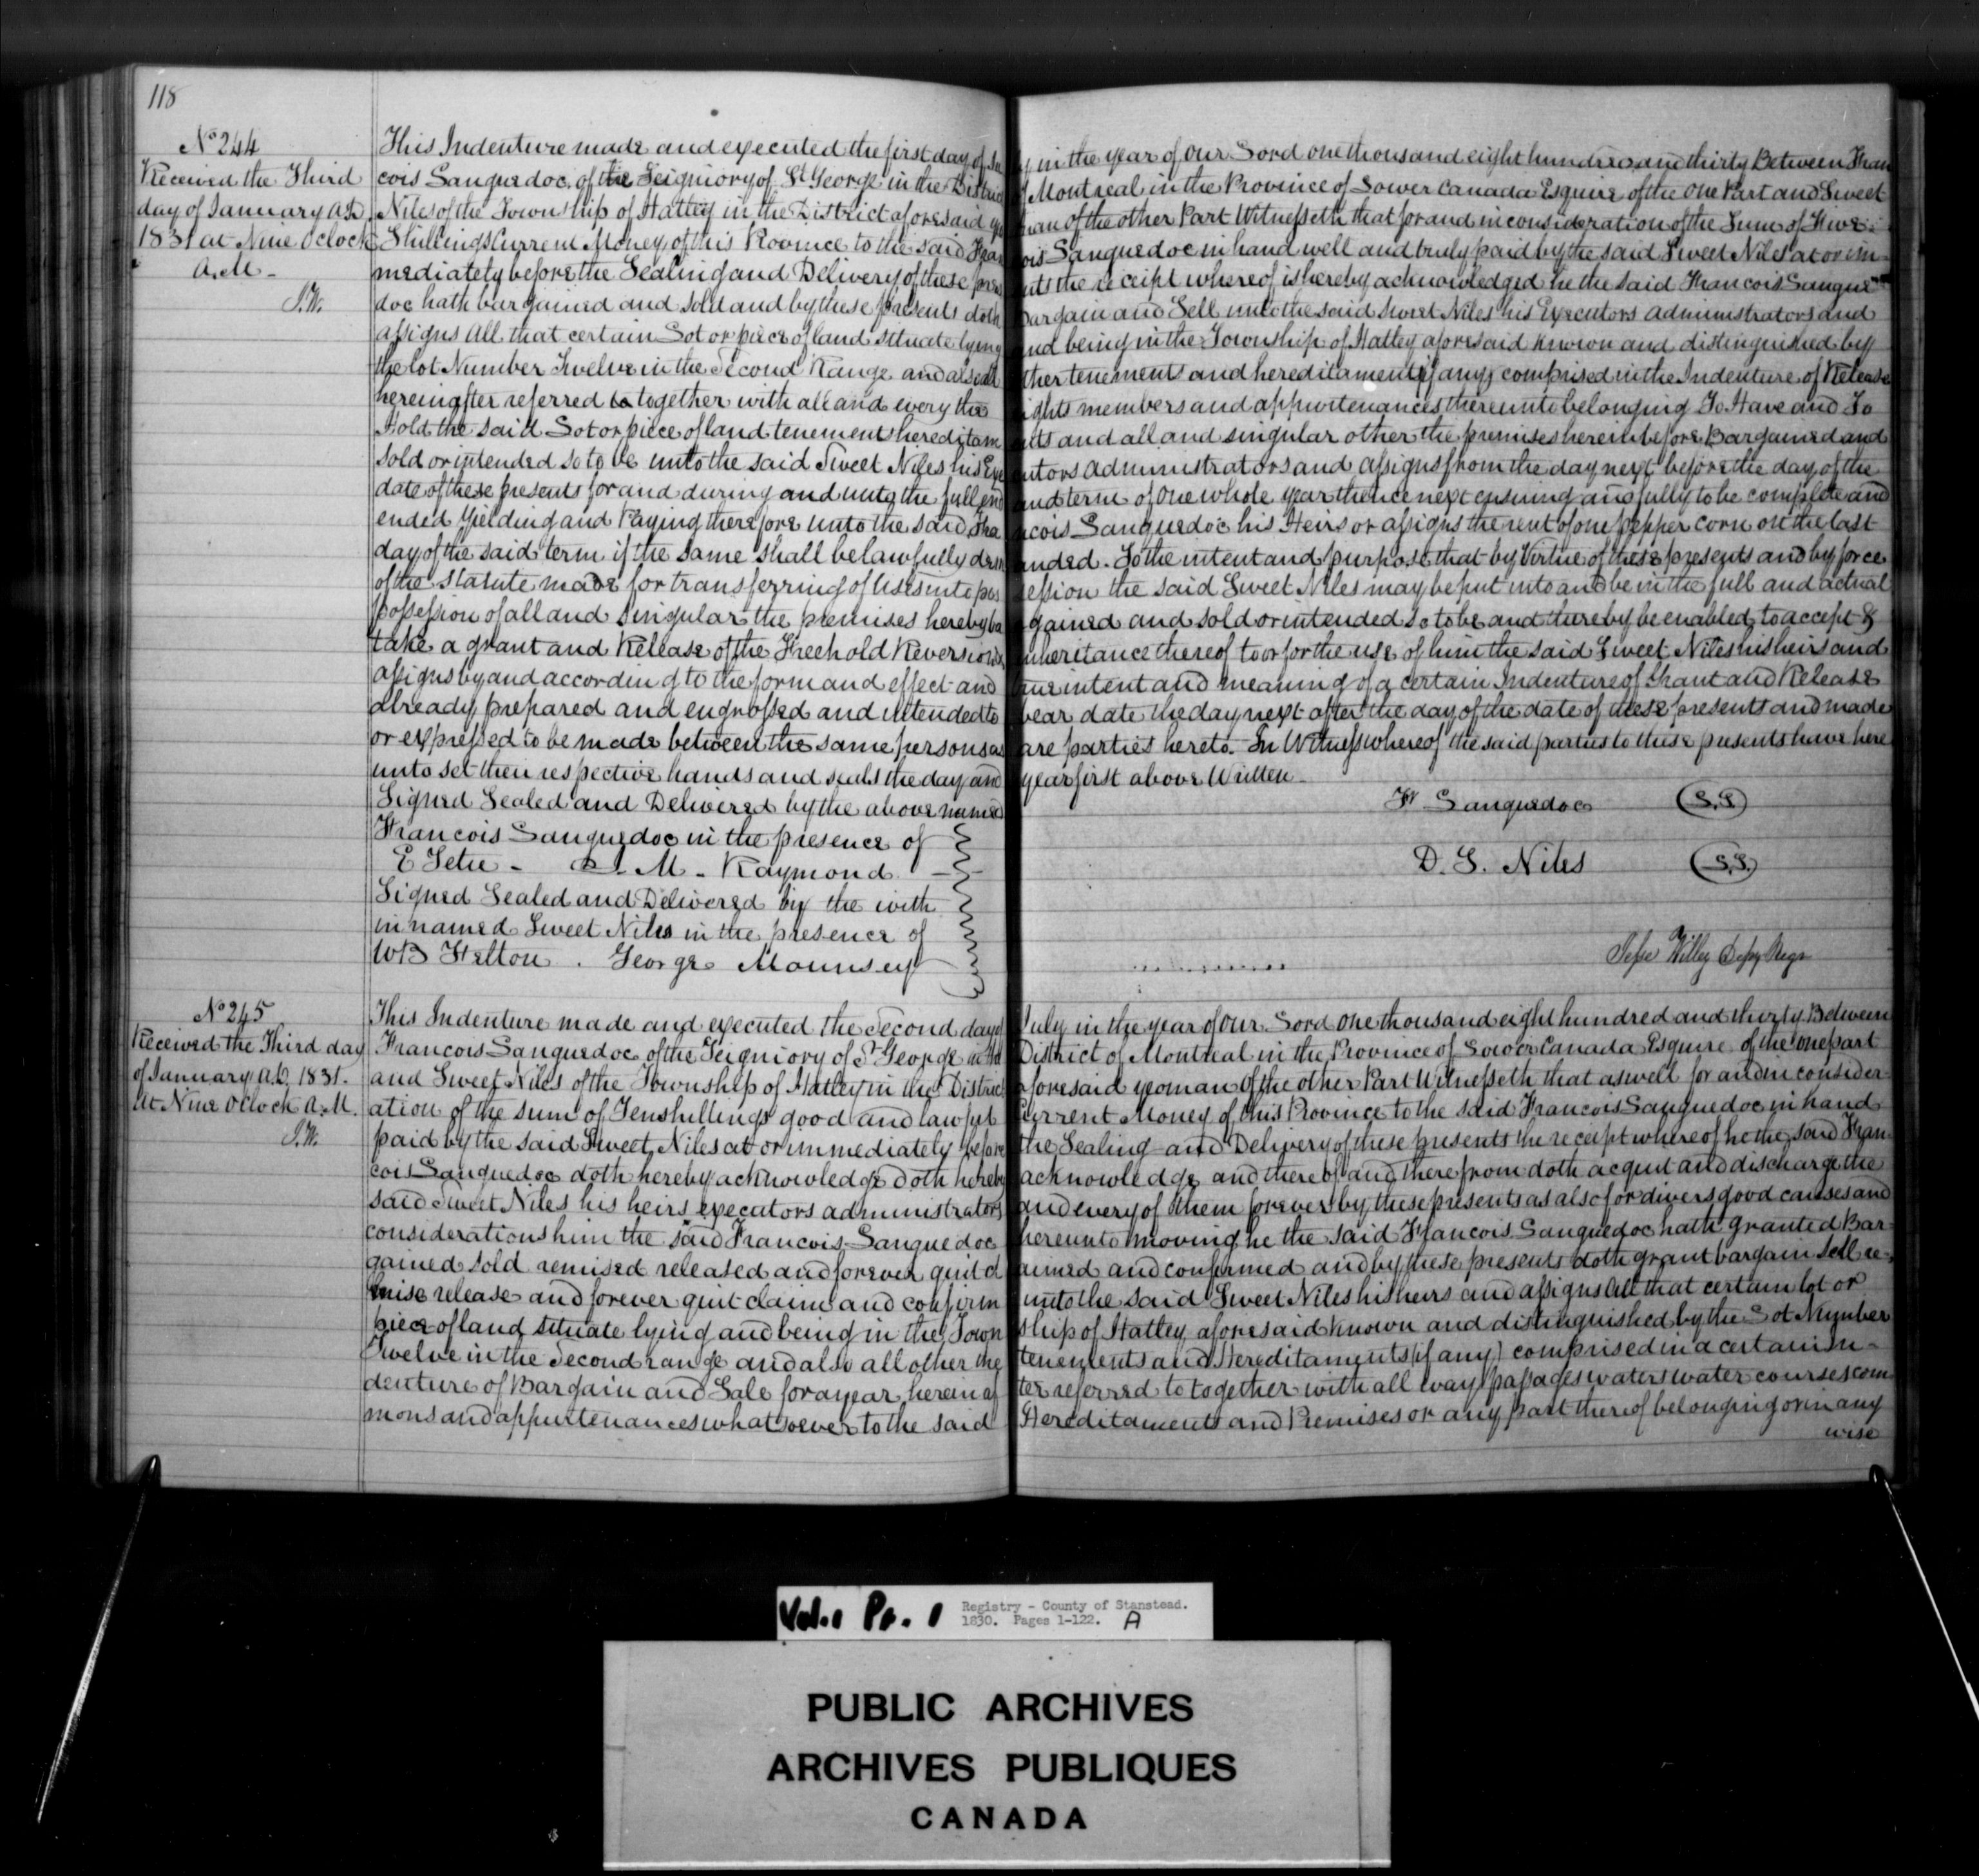 118
No 244
Received the Third
day of January A.D.
1831 at Nine Oclock
A.M.
J.W.
This Indenture made and executed the first day of Ju ly in the year of our Lord one thousand eight hundred and thirty Between Fran
cois Languedoc of the Seigniory of St George in the District of Montreal in the Province of Lower Canada Esquire of the one Part and Sweet
Niles of the Township of Hatley in the District aforesaid yeo man of the other Part Witnesseth that for and in consideration of the Sum of Five
Shillings Current Money of this Province to the said Fran cois Languedoc in hand well and truly paid by the said Sweet Niles at or im
mediately before the Sealing and Delivery of these pres ents the receipt whereof is hereby acknowledged he the said Francois Langue
doc hath bargained and sold and by these presents doth bargain and Sell unto the said Sweet Niles his Executors administrators and
assigns all that certain Lot or piece of land situate lying and being in the Township of Hatley aforesaid known and distinguished by
the lot Number Twelve in the Second Range and also all other tenements and hereditaments (if any) comprised in the Indenture of Release
hereinafter referred to together with all and every the rights members and appurtenances thereunto belonging To Have and To
Hold the said Lot or piece of land tenements hereditam ents and all and singular other the premises hereinbefore Bargained and
sold or intended so to be unto the said Sweet Niles his Exe cutors administrators and assigns from the day next before the day of the
date of these presents for and during and unto the full end and term of one whole year thence next ensuing and fully to be complete and
ended Yielding and Paying therefore unto the said Fra ncois Languedoc his Heirs or assigns the rent of one pepper corn on the last
day of the said term if the same shall be lawfully dem anded. To the intent and purpose that by Virtue of these presents and by force
of the statute made for transferring of Uses into pos session the said Sweet Niles may be put into and be in the full and actual
possession of all and singular the premises hereby ba rgained and sold or intended so to be and thereby be enabled to accept &
take a grant and Release of the Freehold Reversion & inheritance thereof to or for the use of him the said Sweet Niles his heirs and
assigns by and according to the form and effect and true intent and meaning of a certain Indenture of Grant and Release
already prepared and engrossed and intended to bear date the day next after the day of the date of these presents and made
or expressed to be made between the same persons as are parties hereto. In Witness whereof the said parties to these presents have here
unto set their respective hands and seals the day and year first above Written
Signed Sealed and Delivered by the above named
Fr Languedoc L.S
Francois Languedoc in the presence of
E Tetu - L. M. Raymond
D. S. Niles L.S.
Signed Sealed and Delivered by the with
in named Sweet Niles in the presence of
WB Felton . George Mounsey
Jesse Willey Depy Regr
No 245
Received the Third day
of January A.D. 1831.
At Nine Oclock A.M.
J.W.
This Indenture made and executed the Second day of July in the year of our Lord one thousand eight hundred and thirty Between
Francois Languedoc of the Seigniory of St George in the District of Montreal in the Province of Lower Canada Esquire of the one part
and Sweet Niles of the Township of Hatley in the District aforesaid yeoman of the other Part Witnesseth that as well for and in consider
ation of the sum of Ten shillings good and lawful Current Money of this Province to the said Francois Languedoc in hand
paid by the said Sweet Niles at or immediately before the Sealing and Delivery of these presents the receipt whereof he the said Fran
cois Languedoc doth hereby acknowledge doth hereby acknowledge and thereof and therefrom doth acquit and discharge the
said Sweet Niles his heirs executors administrators and every of them forever by these presents as also for divers good causes and
considerations him the said Francois Languedoc hereunto moving he the said Francois Languedoc hath granted Bar
gained sold remised released and forever quit cl aimed and confirmed and by these presents doth grant bargain sell re
mise release and forever quit claim and confirm unto the said Sweet Niles his heirs and assigns all that certain lot or
piece of land situate lying and being in the Town ship of Hatley aforesaid known and distinguished by the Lot Number
Twelve in the Second range and also all other the tenements and Hereditaments (if any) comprised in a certain In-
denture of Bargain and Sale for a year herein af ter referred to together with all ways passages waters water courses com
mons and appurtenances whatsoever to the said Hereditaments and Premises or any part thereof belonging or in any
wise
Vol. 1 Pg. 1
Registry - County of Stanstead.
1830. Pages 1-122. A
PUBLIC ARCHIVES
ARCHIVES PUBLIQUES
CANADA